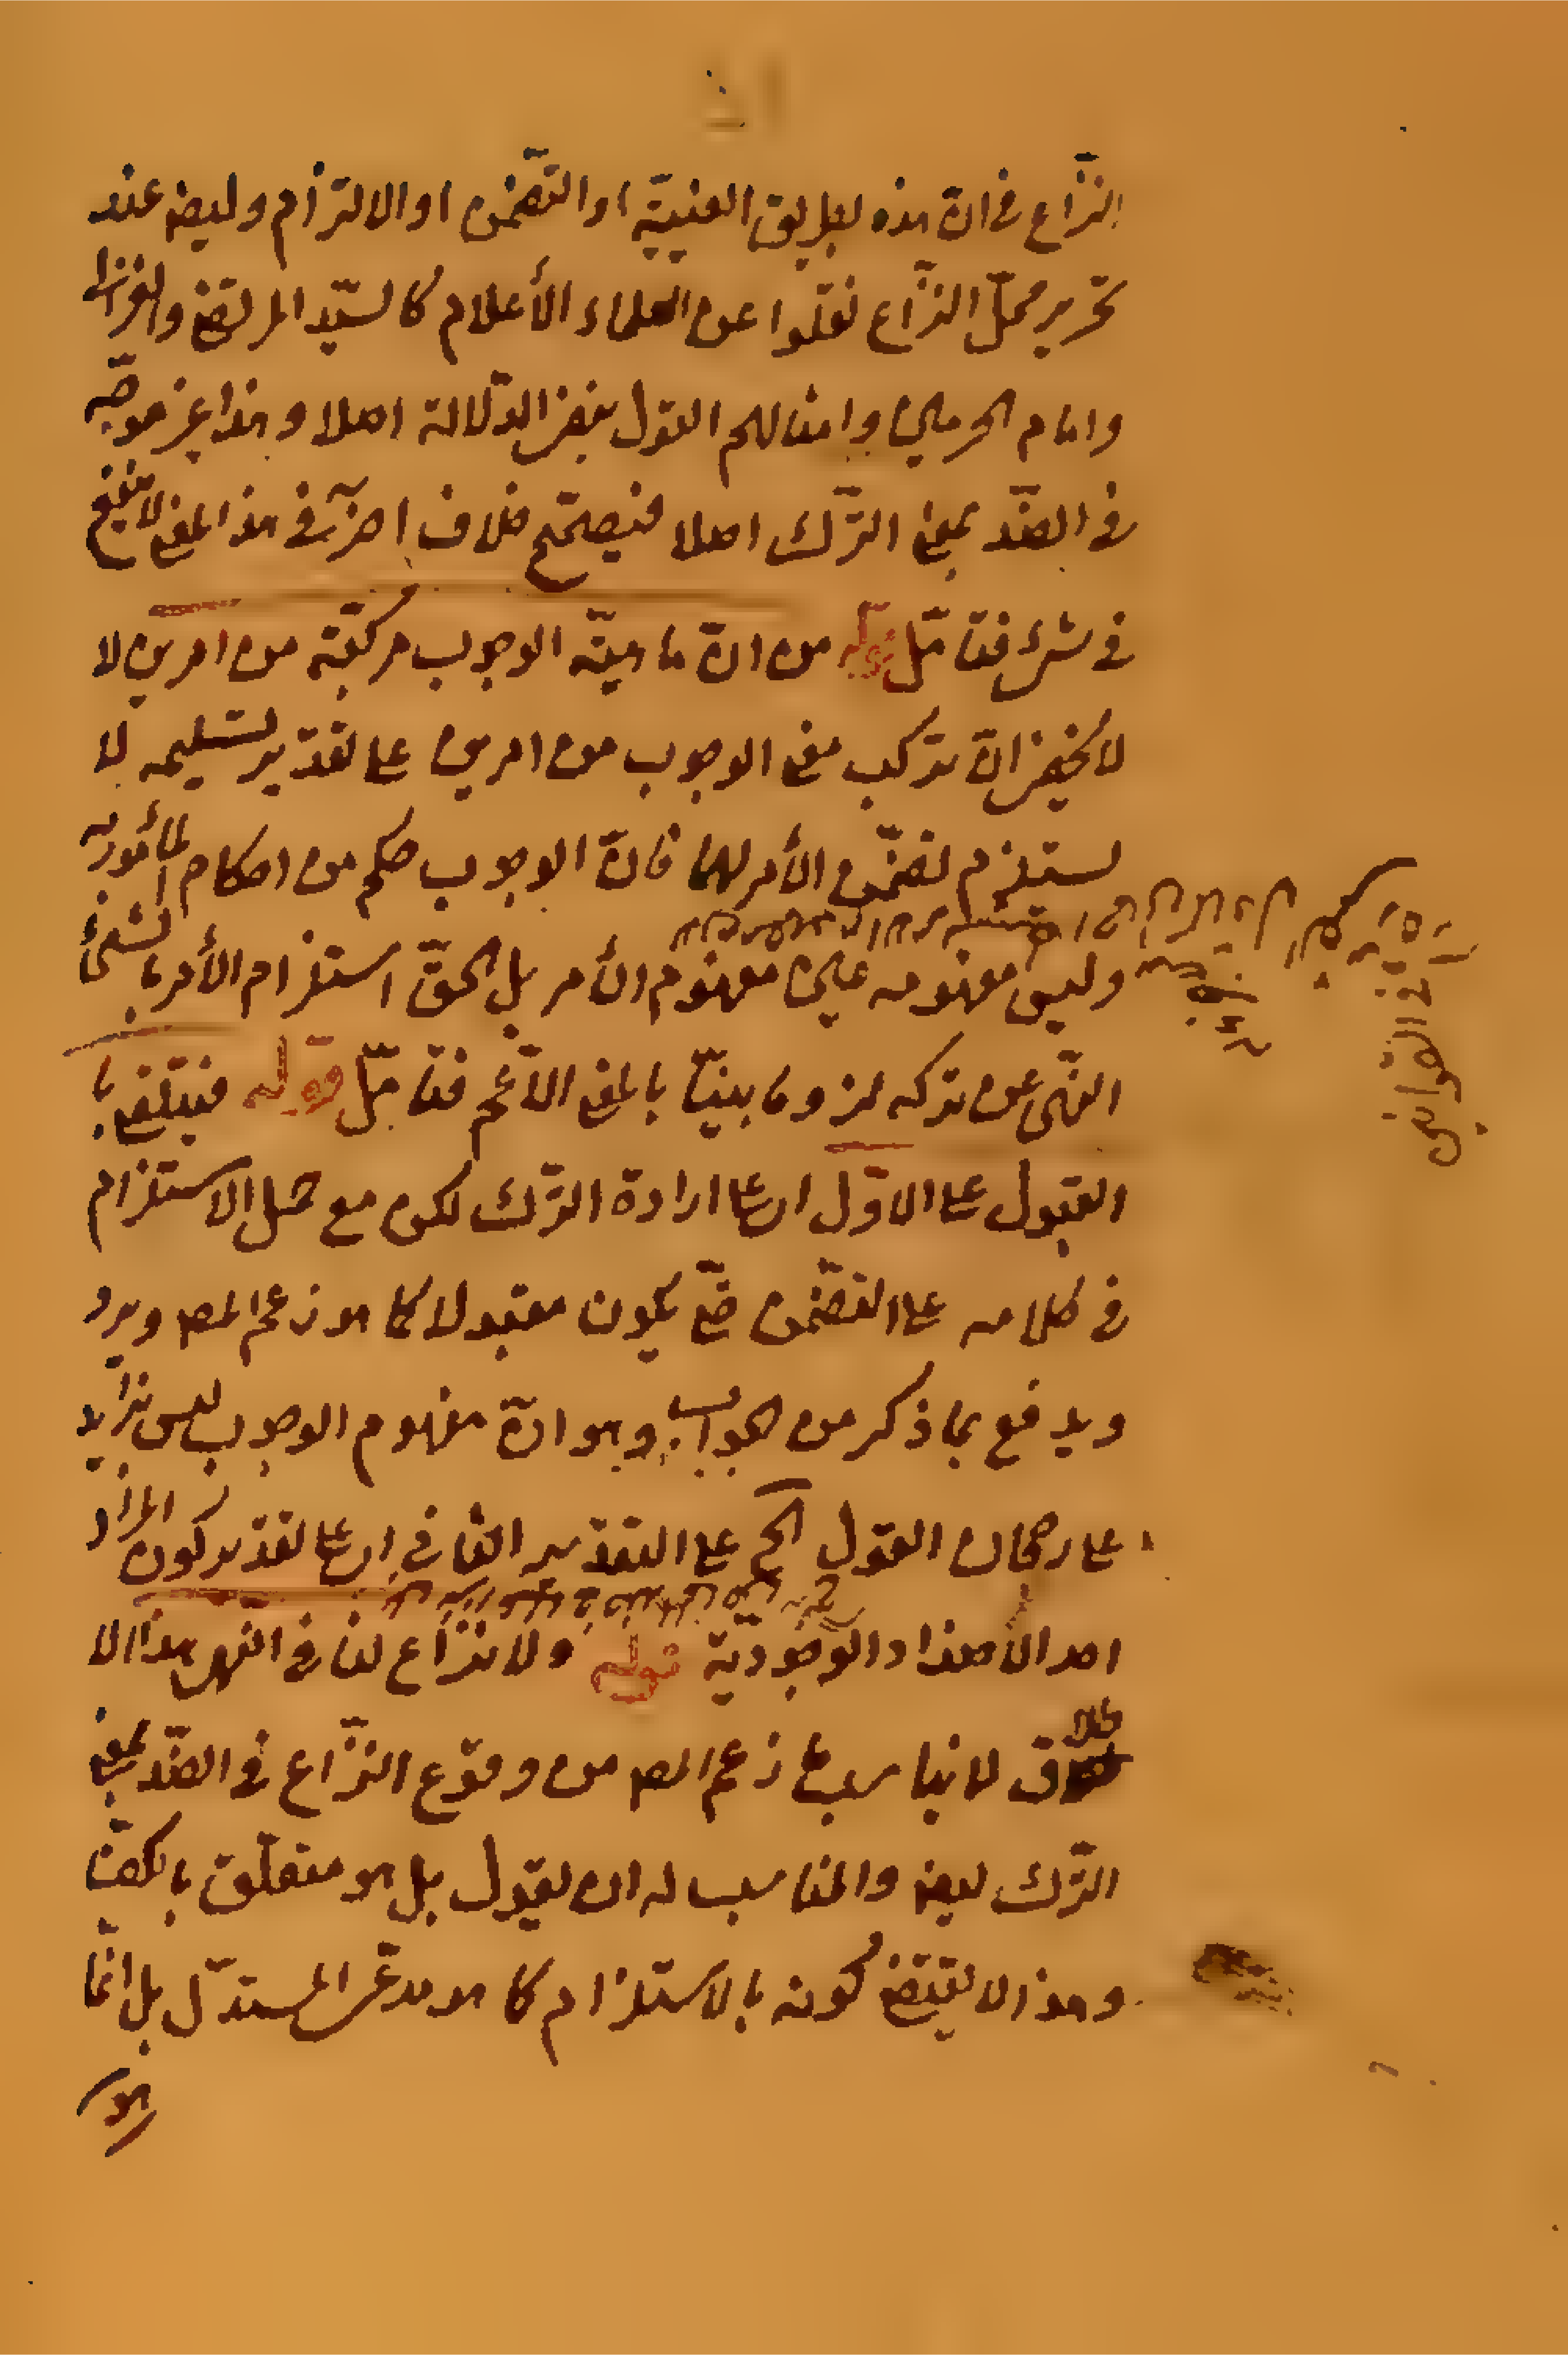 النزّاع فى انّ هذه بطريق العينيّة او التضّمن او الالتزام وليضه عند
تحرير محلّ النزّاع نقلوا عن العلماء الأعلام كالسّيد المرتضى والغزالى
وامام الحرمين وامثالهم القول بنفى الدّلالة اصلا وهذا غير موجّه
فى الضّد بمعنى الترّك اصلا فيصحّح خلاف اخر فى هذا المعنى لا ينبغى
فى شىء فتامّل قوله من انّ ماهيّة الوجوب مركّبة من امرين لا
لا يخفى انّ تركب معنى الوجوب من امرين على تقدير تسليمه لا
يستلزم تضمّن الأمر لهما فانّ الوجوب حكم من احكام المأمور به
وليس مفهومه عين مفهوم الأمر بل الحقّ استلزام الأمر بالشىء
النّهى عن تركه لزوما بينّا بالمعنى الأعم فتامّل قوله فيتلقى با
القبول على الاوّل اى على ارادة الترّك لكن مع حمل الاستلزام
فى كلامه على التضّمن حتّى يكون مقبولا كما هو زعم المص ويرد
ويدفع بما ذكر من الجواب وهو انّ مفهوم الوجوب ليس بزايد
على رجحان القول الخ على التقدير الثانى اى على تقدير كون المراد
احد الأضداد الوجوديّة قوله ولا نزاع لنا فى النهى هذا الا
طلاق لا يناسب ما زعم المص من وقوع النزّاع فى الضّد بمعنى
الترّك ليضه والمناسب له ان يقول بل هو متعلّق بالكفّ
وهذا لا يقتضى كونه بالاستلزام كما هو مدعى المستدلّ بل انّما
هو